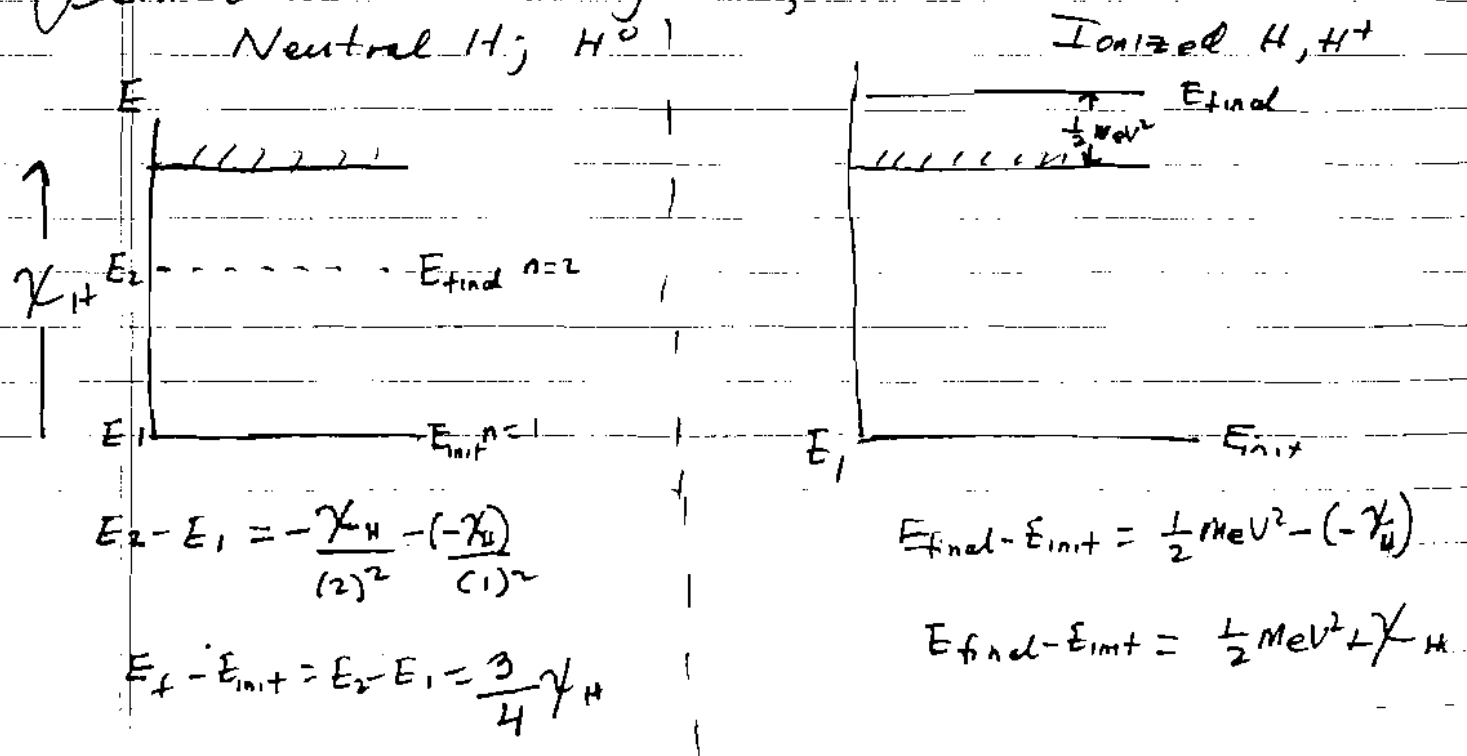 Neutral H; H⁰
E
χ_H
E₂
E_final n=2
E₁
E_init n=1
E₂ - E₁ = -χ_H/(2)² - (-χ_H)/(1)²
E_f - E_init = E₂ - E₁ = 3/4 χ_H
Ionized H, H⁺
E_final
½ meV²
E₁
E_init
E_final - E_init = ½ meV² - (-χ_H)
E_final - E_init = ½ meV² + χ_H